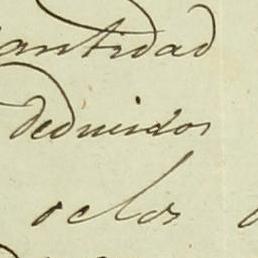 cantidad
deducidos
o clos